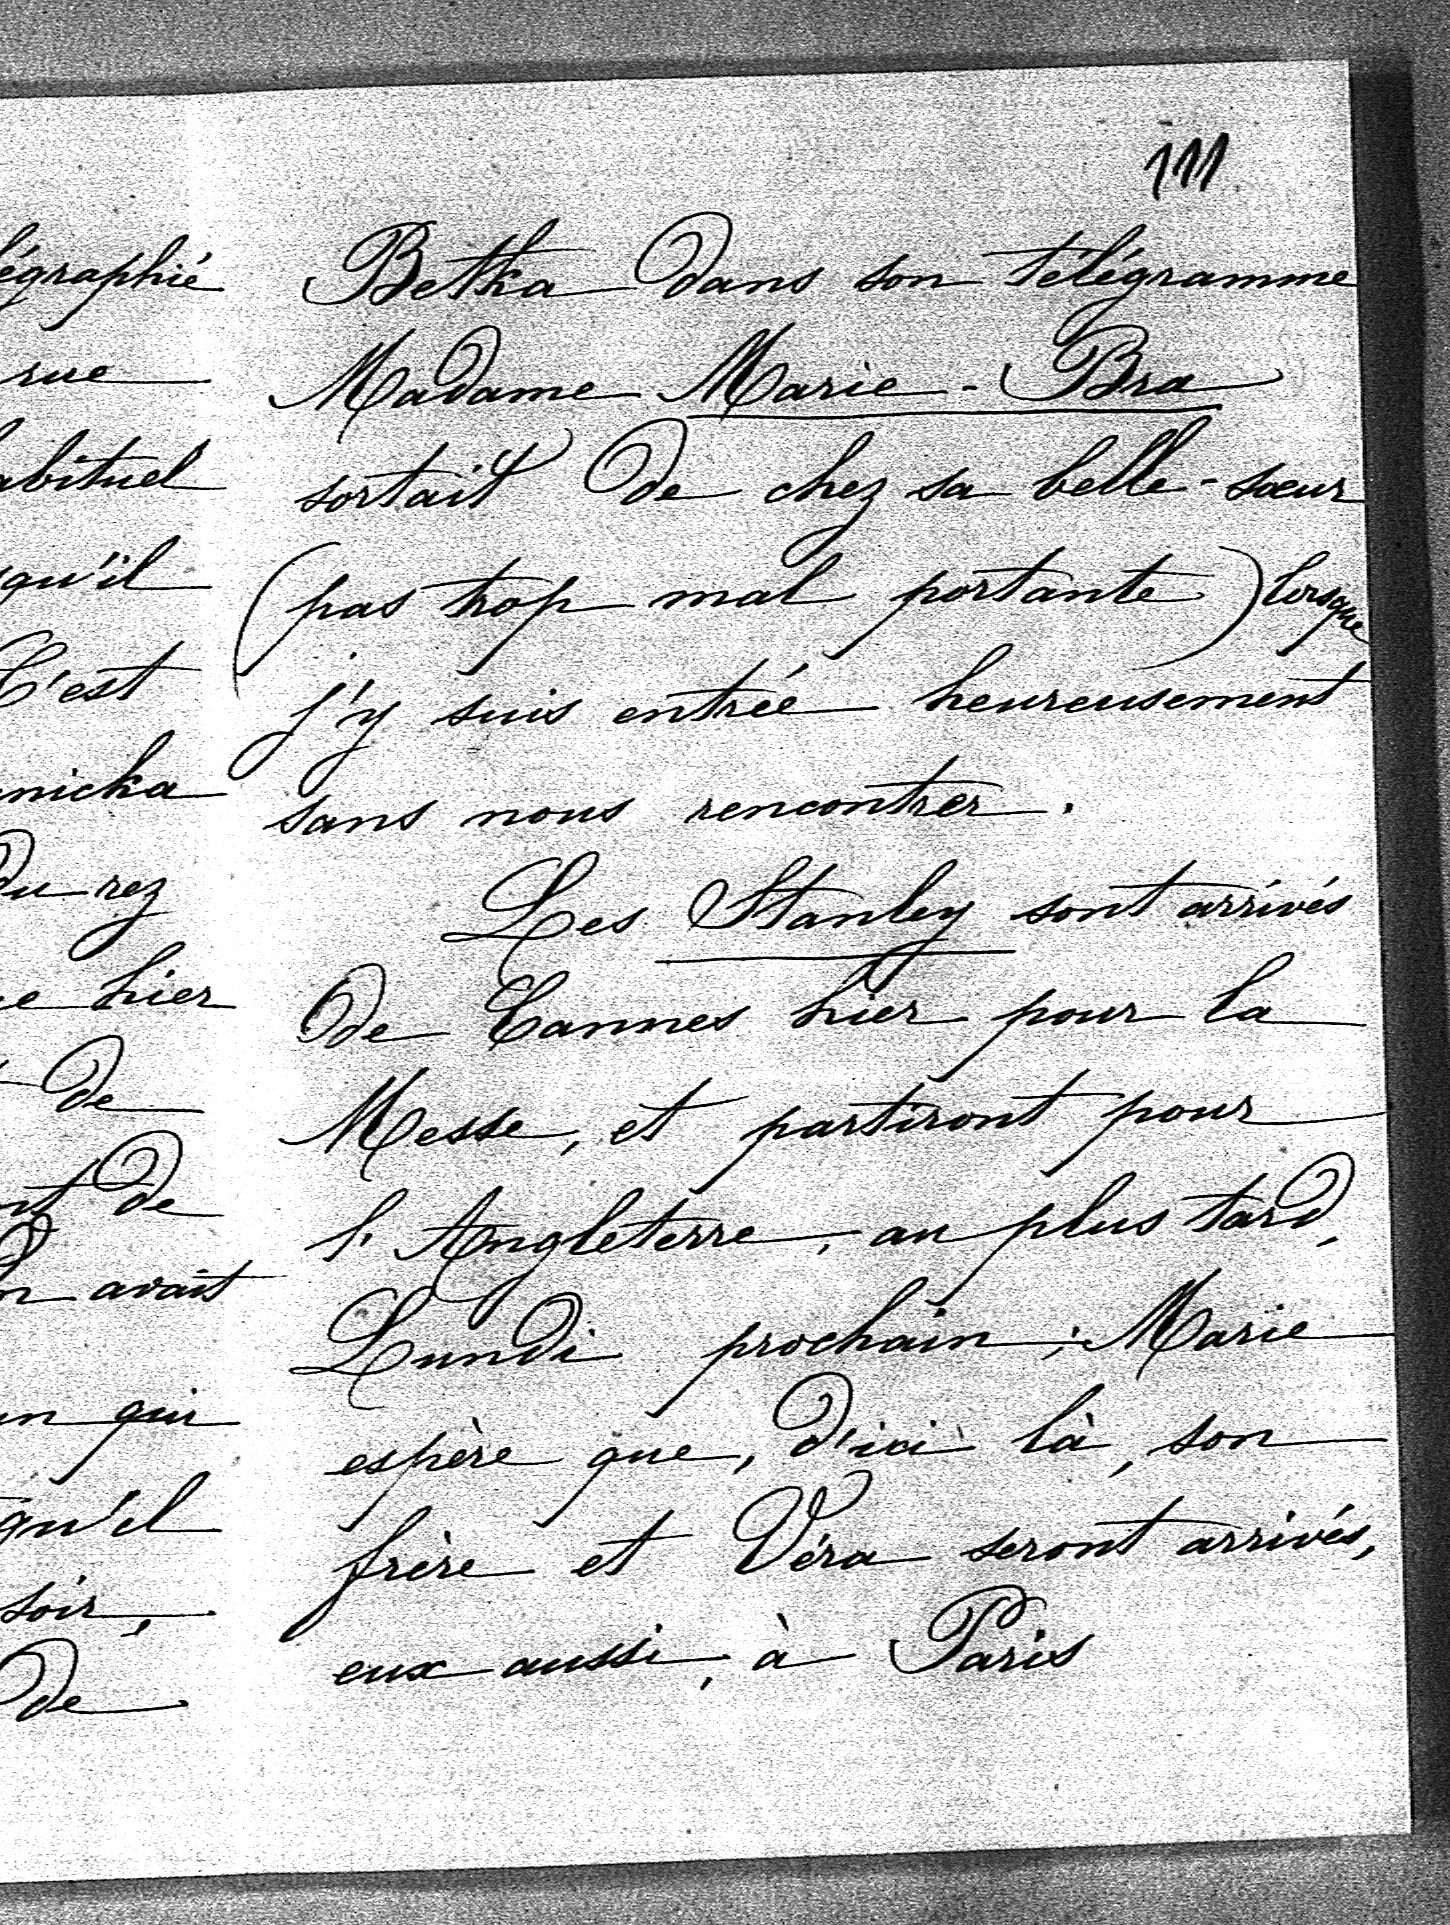 111
égraphié
rue
abituel
qu'il
C'est
nicka
du rez
e hier
de
nt de
n avait
un qui
qu'il
soir,
de
Betka dans son télégramme
Madame Marie-Bra
sortait de chez sa belle-sœur
(pas trop mal portante) lorsque
j'y suis entrée heureusement
sans nous rencontrer.
Les Stanley sont arrivés
de Cannes hier pour la
Messe, et partiront pour
l'Angleterre, au plus tard,
Lundi prochain; Marie
espère que, d'ici là, son
frère et Véra seront arrivés,
eux aussi, à Paris